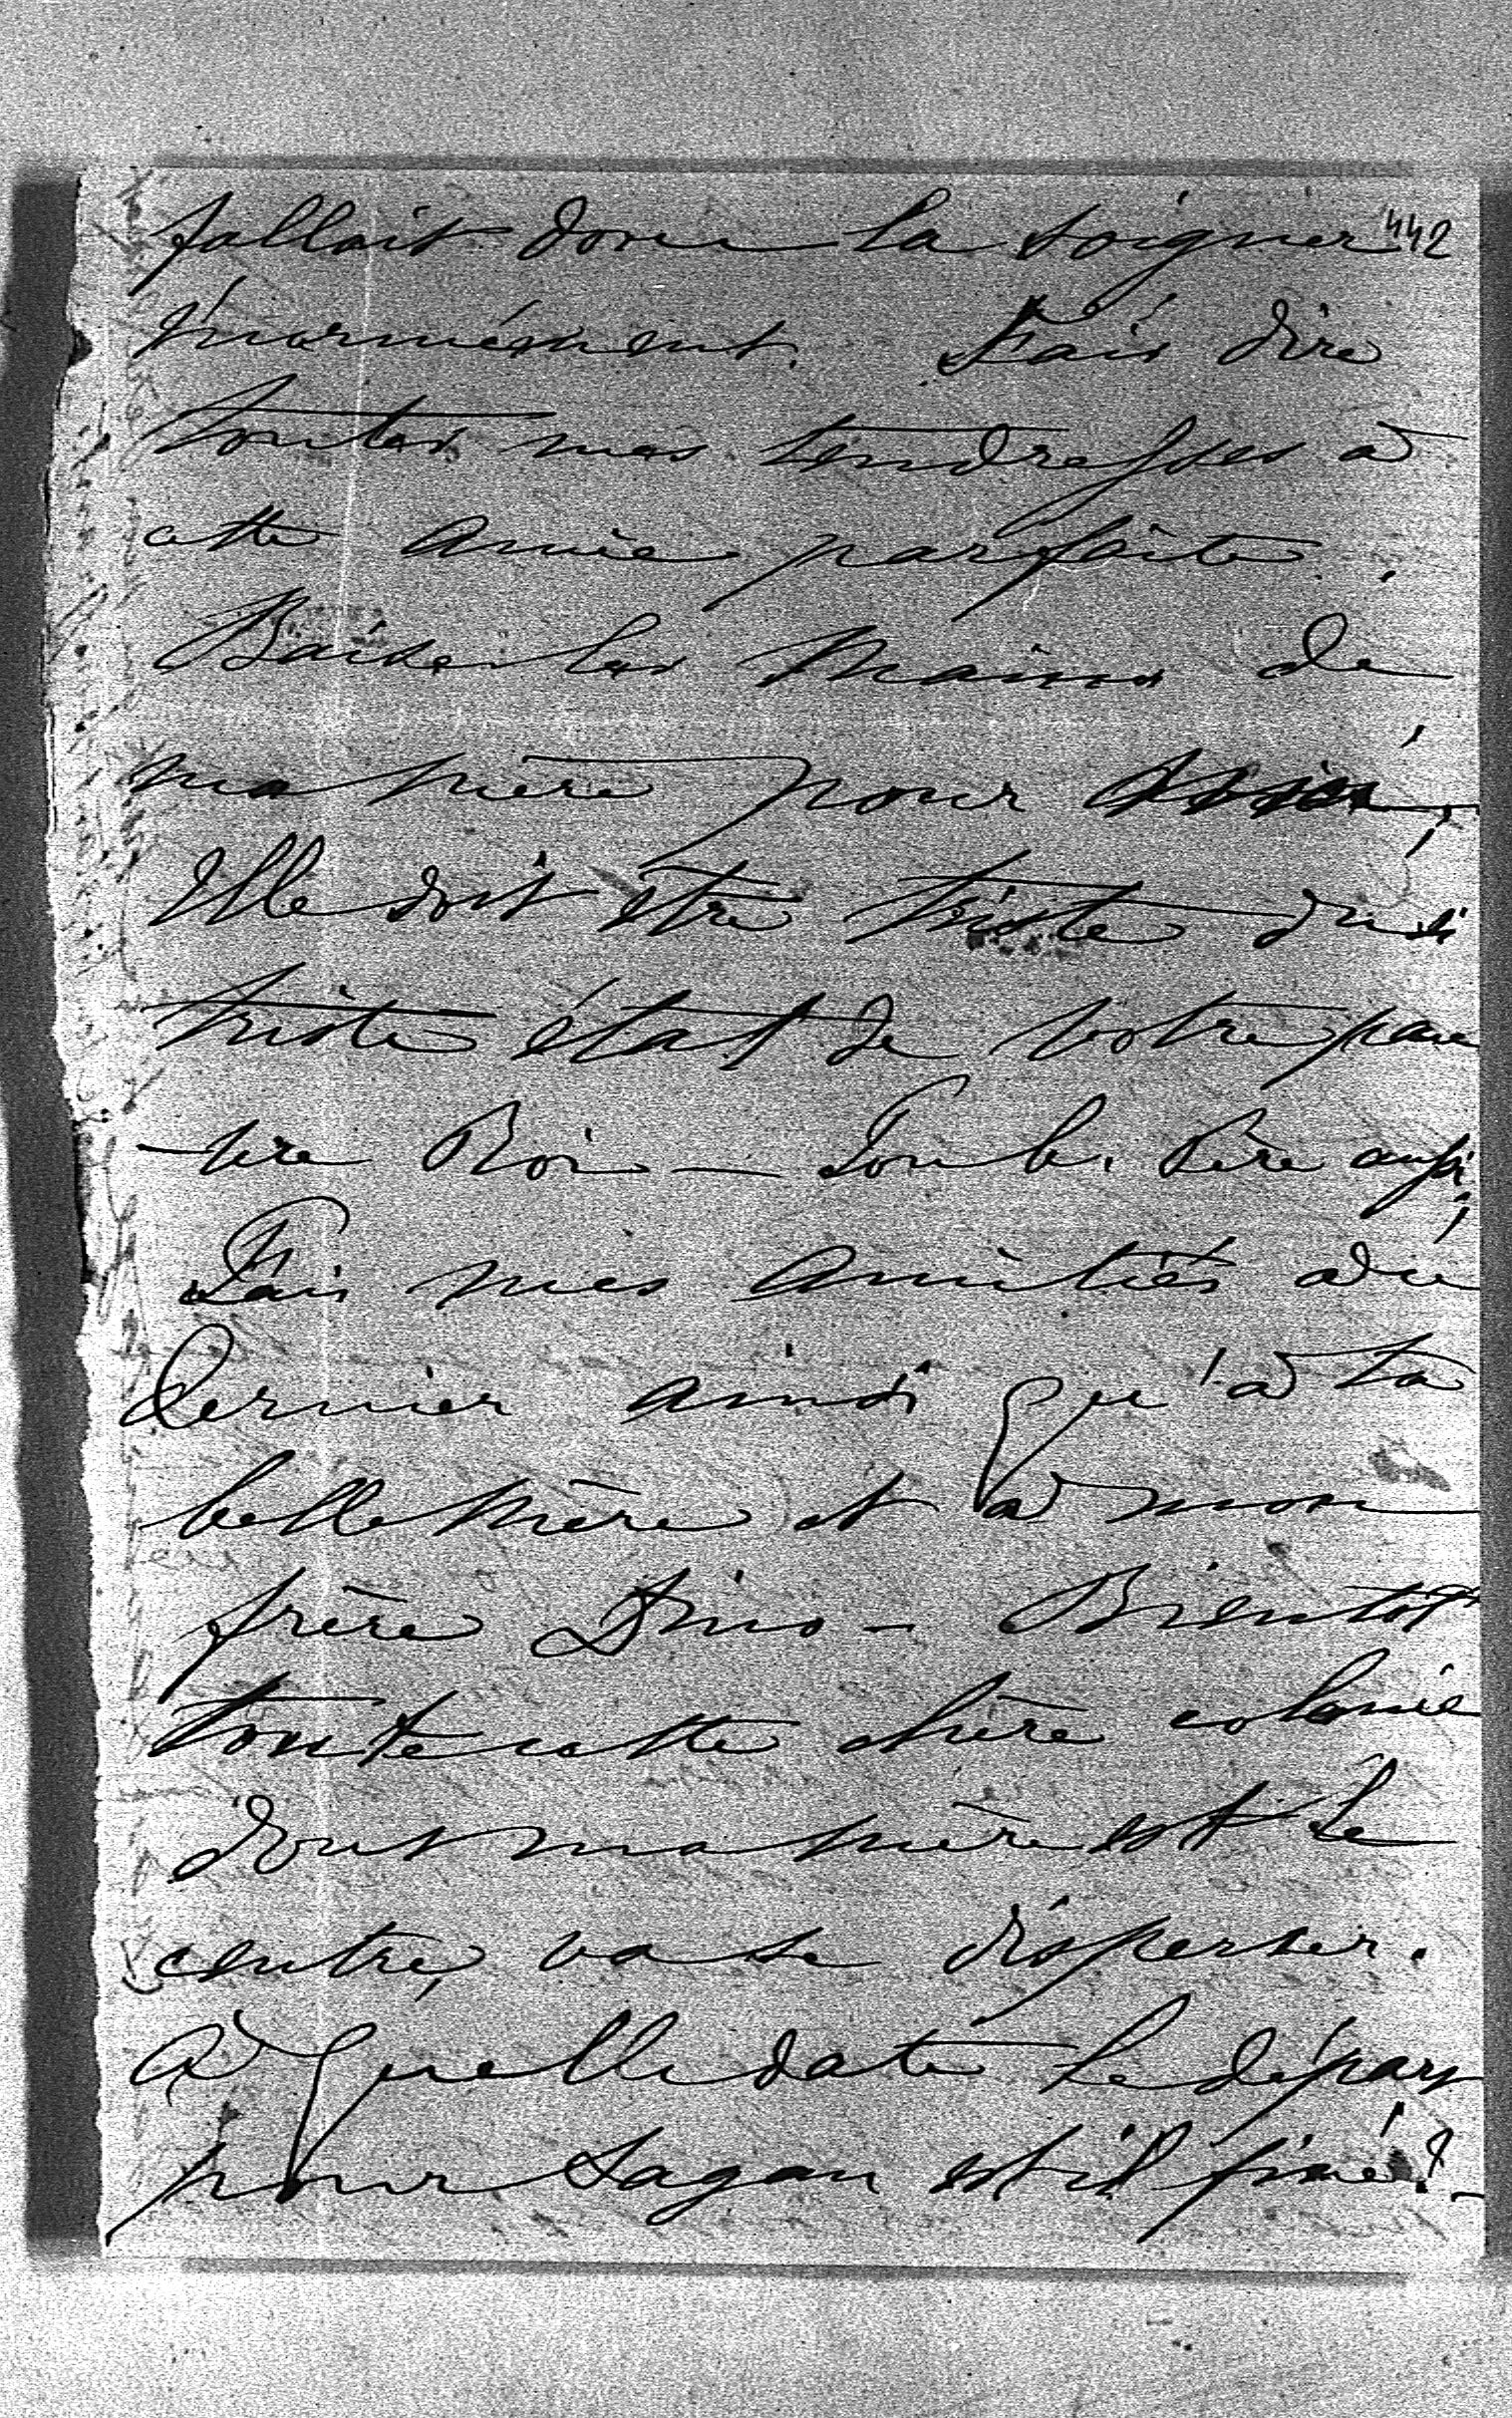 442
fallait donc la soigner
énormément. Fais dire
toutes mes tendresses à
cette amie parfaite.
Baise les mains de
ma mère pour moi,
Elle doit être triste du si
triste état de votre pau
-vre Roi — Ton b. Père aussi;
Fais mes amitiés au
dernier ainsi qu'à ta
belle mère et à mon
frère Dino — Bientôt
toute cette chère colonie
dont ma mère est le
centre, va se disperser.
A quelle date le départ
pour Sagan est il fixé? —